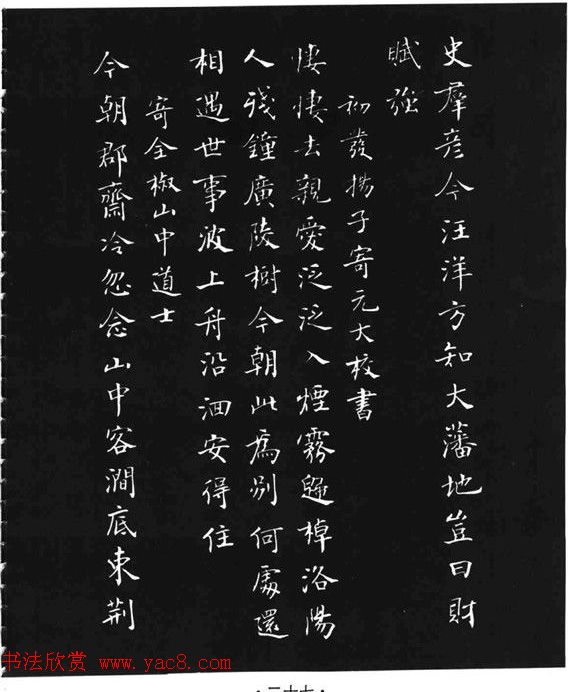 史羣彦今汪洋方知大藩地豈曰財
賦強
初發揚子寄元大校書
悽悽去親愛泛泛入煙霧歸棹洛陽
人殘鐘廣陵樹今朝此為別何處還
相遇世事波上舟沿洄安得住
寄全椒山中道士
今朝郡齋冷忽念山中客澗底束荆
书法欣赏 www.yac8.com
·二十七·